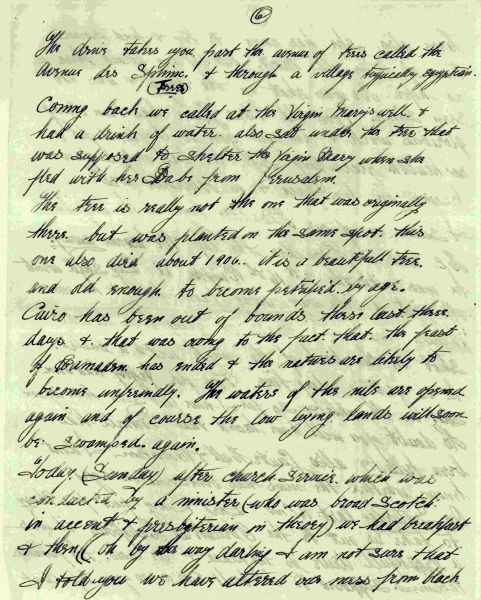 6
The drive takes you past the avenue of trees called the
Avenue des Sphinx. & through a village typically egyptian.
(Trees)
Coming back we called at the Virgin Mary's well. &
had a drink of water. also sat under the tree that
was supposed to shelter the Virgin Mary when she
fled with her Babe from Jerusalem.
The tree is really not the one that was originally
there. but was planted on the same spot. this
one also died about 1906.. it is a beautifull tree.
and old enough. to become petrified. by age.
Cairo has been out of bounds these last three
days & that was owing to the fact that the feast
of Ramadan has ended & the natives are likely to
become unfriendly. The waters of the nile are opened
again and of course the low lying lands will soon
be swamped. again.
Today (Sunday) after church service. which was
conducted by a minister (who was broad Scotch
in accent & presbyterian in theory) we had breakfast
& then (oh by the way darling I am not sure that
I told you we have altered our mess from black